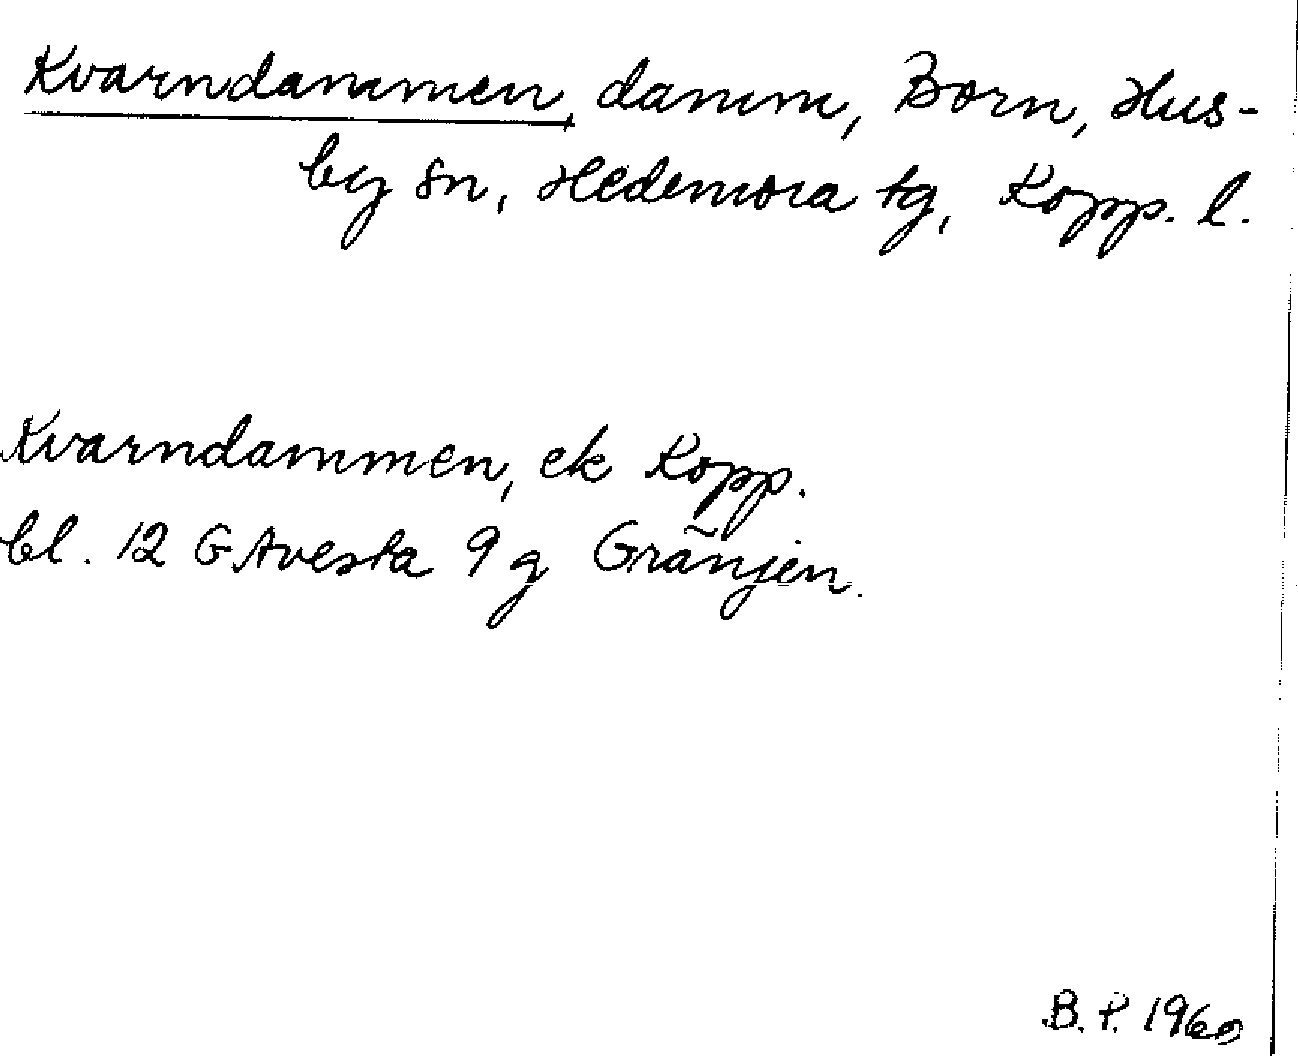 Kvarndammen, damm, Born, Hus-
by sn, Hedemora tg, Kopp. l.
Kvarndammen, ek Kopp.
bl. 12 G Avesta 9 g Gränjen.
B. P. 1969